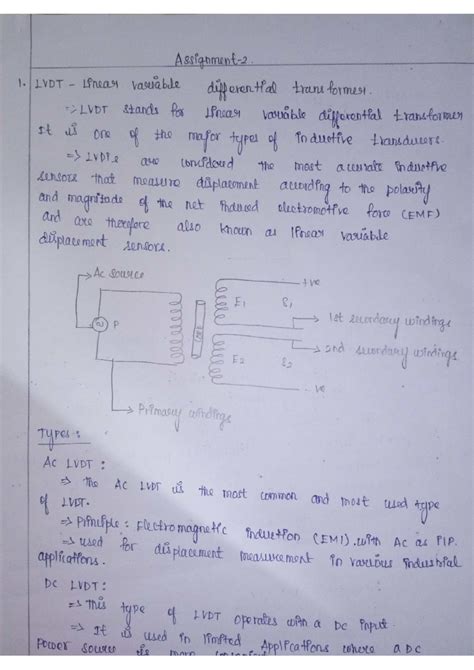 Assignment-2.
1. LVDT - Linear variable differential transformer.
=> LVDT stands for linear variable differential transformer
It is one of the major types of inductive transducers.
=> LVDTs are considered the most accurate inductive
sensors that measure displacement according to the polarity
and magnitude of the net induced electromotive force (EMF)
and are therefore also known as linear variable
displacement sensors.
Ac source
P
E1 S1
+ve
1st secondary windings
2nd secondary windings
E2 S2
-ve
Primary windings
Types :
Ac LVDT :
=> The AC LVDT is the most common and most used type
of LVDT.
=> Principle : Electromagnetic induction (EMI) with Ac as PIP.
=> used for displacement measurement in various industrial
applications.
DC LVDT :
=> This type of LVDT operates with a DC input.
=> It is used in limited Applications where a DC
Power source is more